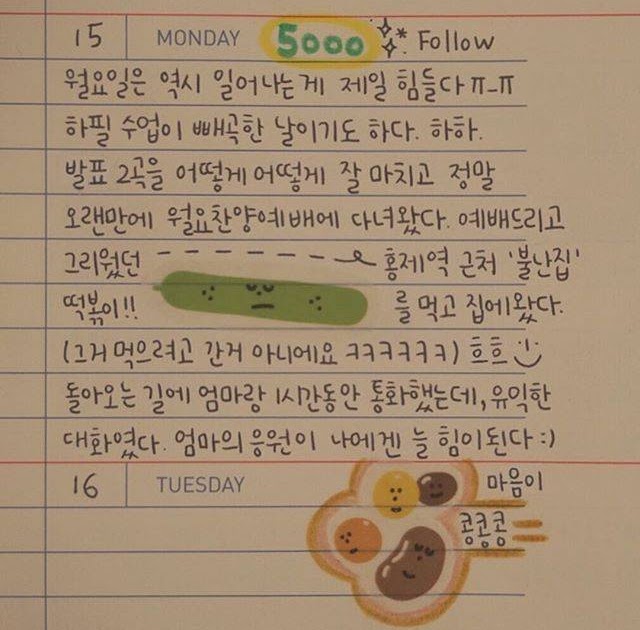 15 MONDAY 5000 Follow
월요일은 역시 일어나는게 제일 힘들다 ㅠ_ㅠ
하필 수업이 빼곡한 날이기도 하다. 하하.
발표 2곡을 어떻게어떻게 잘 마치고 정말
오랜만에 월요찬양예배에 다녀왔다. 예배드리고
그리웠던 홍제역 근처 '불난집'
떡볶이!! 를 먹고 집에왔다.
(그거 먹으려고 간거 아니에요 ㅋㅋㅋㅋㅋㅋ) 흐흐
돌아오는 길에 엄마랑 1시간동안 통화했는데, 유익한
대화였다. 엄마의 응원이 나에겐 늘 힘이된다 :)
16 TUESDAY 마음이
콩콩콩